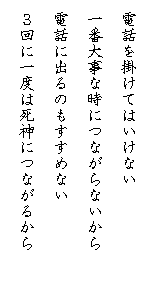 電話を掛けてはいけない
一番大事な時につながらないから
電話に出るのもすすめない
３回に一度は死神につながるから